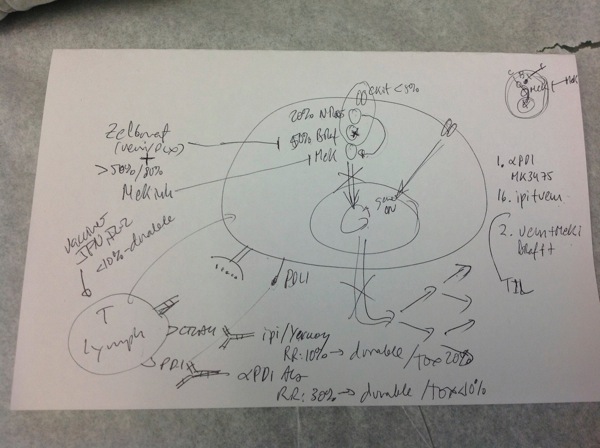 cKit <5%
20% NRas
50% BRaf
MeK
Zelboraf
(vemi/Plx)
+
>50%/80%
Mek inh
vaccines
IFN, IL-2
<10% - durable
T
Lymph
gene
ON
PDL1
CTLA4
ipi/Yervoy
RR: 10% → durable / tox 20%
PD1
αPD1 Abs
RR: 30% → durable / tox <10%
C
B
Mek
Mek
1. αPD1
MK3475
1b. ipi + vem
2. vem + Meki
BRaf +
TIL